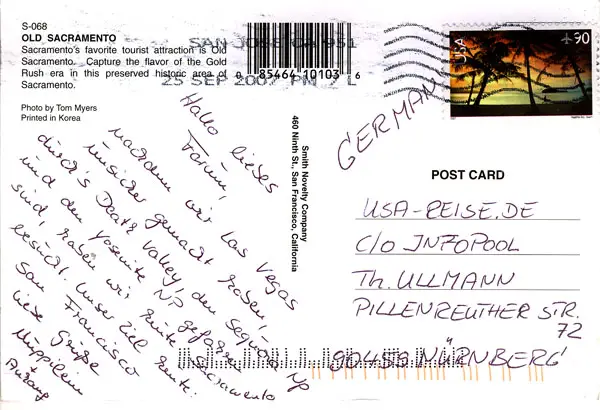 S-068
OLD SACRAMENTO
Sacramento's favorite tourist attraction is Old
Sacramento. Capture the flavor of the Gold
Rush era in this preserved historic area of
Sacramento.
Photo by Tom Myers
Printed in Korea
SAN JOSE CA 951
25 SEP 2007 PM L
0 85464 10103 6
Smith Novelty Company
460 Ninth St., San Francisco, California
USA
90
GERMANY
Hallo liebes
Forum,
nachdem wir Las Vegas
unsicher gemacht haben,
durch's Death Valley, den Sequoia NP
und den Yosemite NP gefahren
sind, haben wir heute Sacramento
besucht. Unser Ziel heute:
San Francisco
Liebe Grüße
POST CARD
USA-REISE.DE
C/O INFOPOOL
TH. ULLMANN
PILLENREUTHER STR.
72
90459 NÜRNBERG